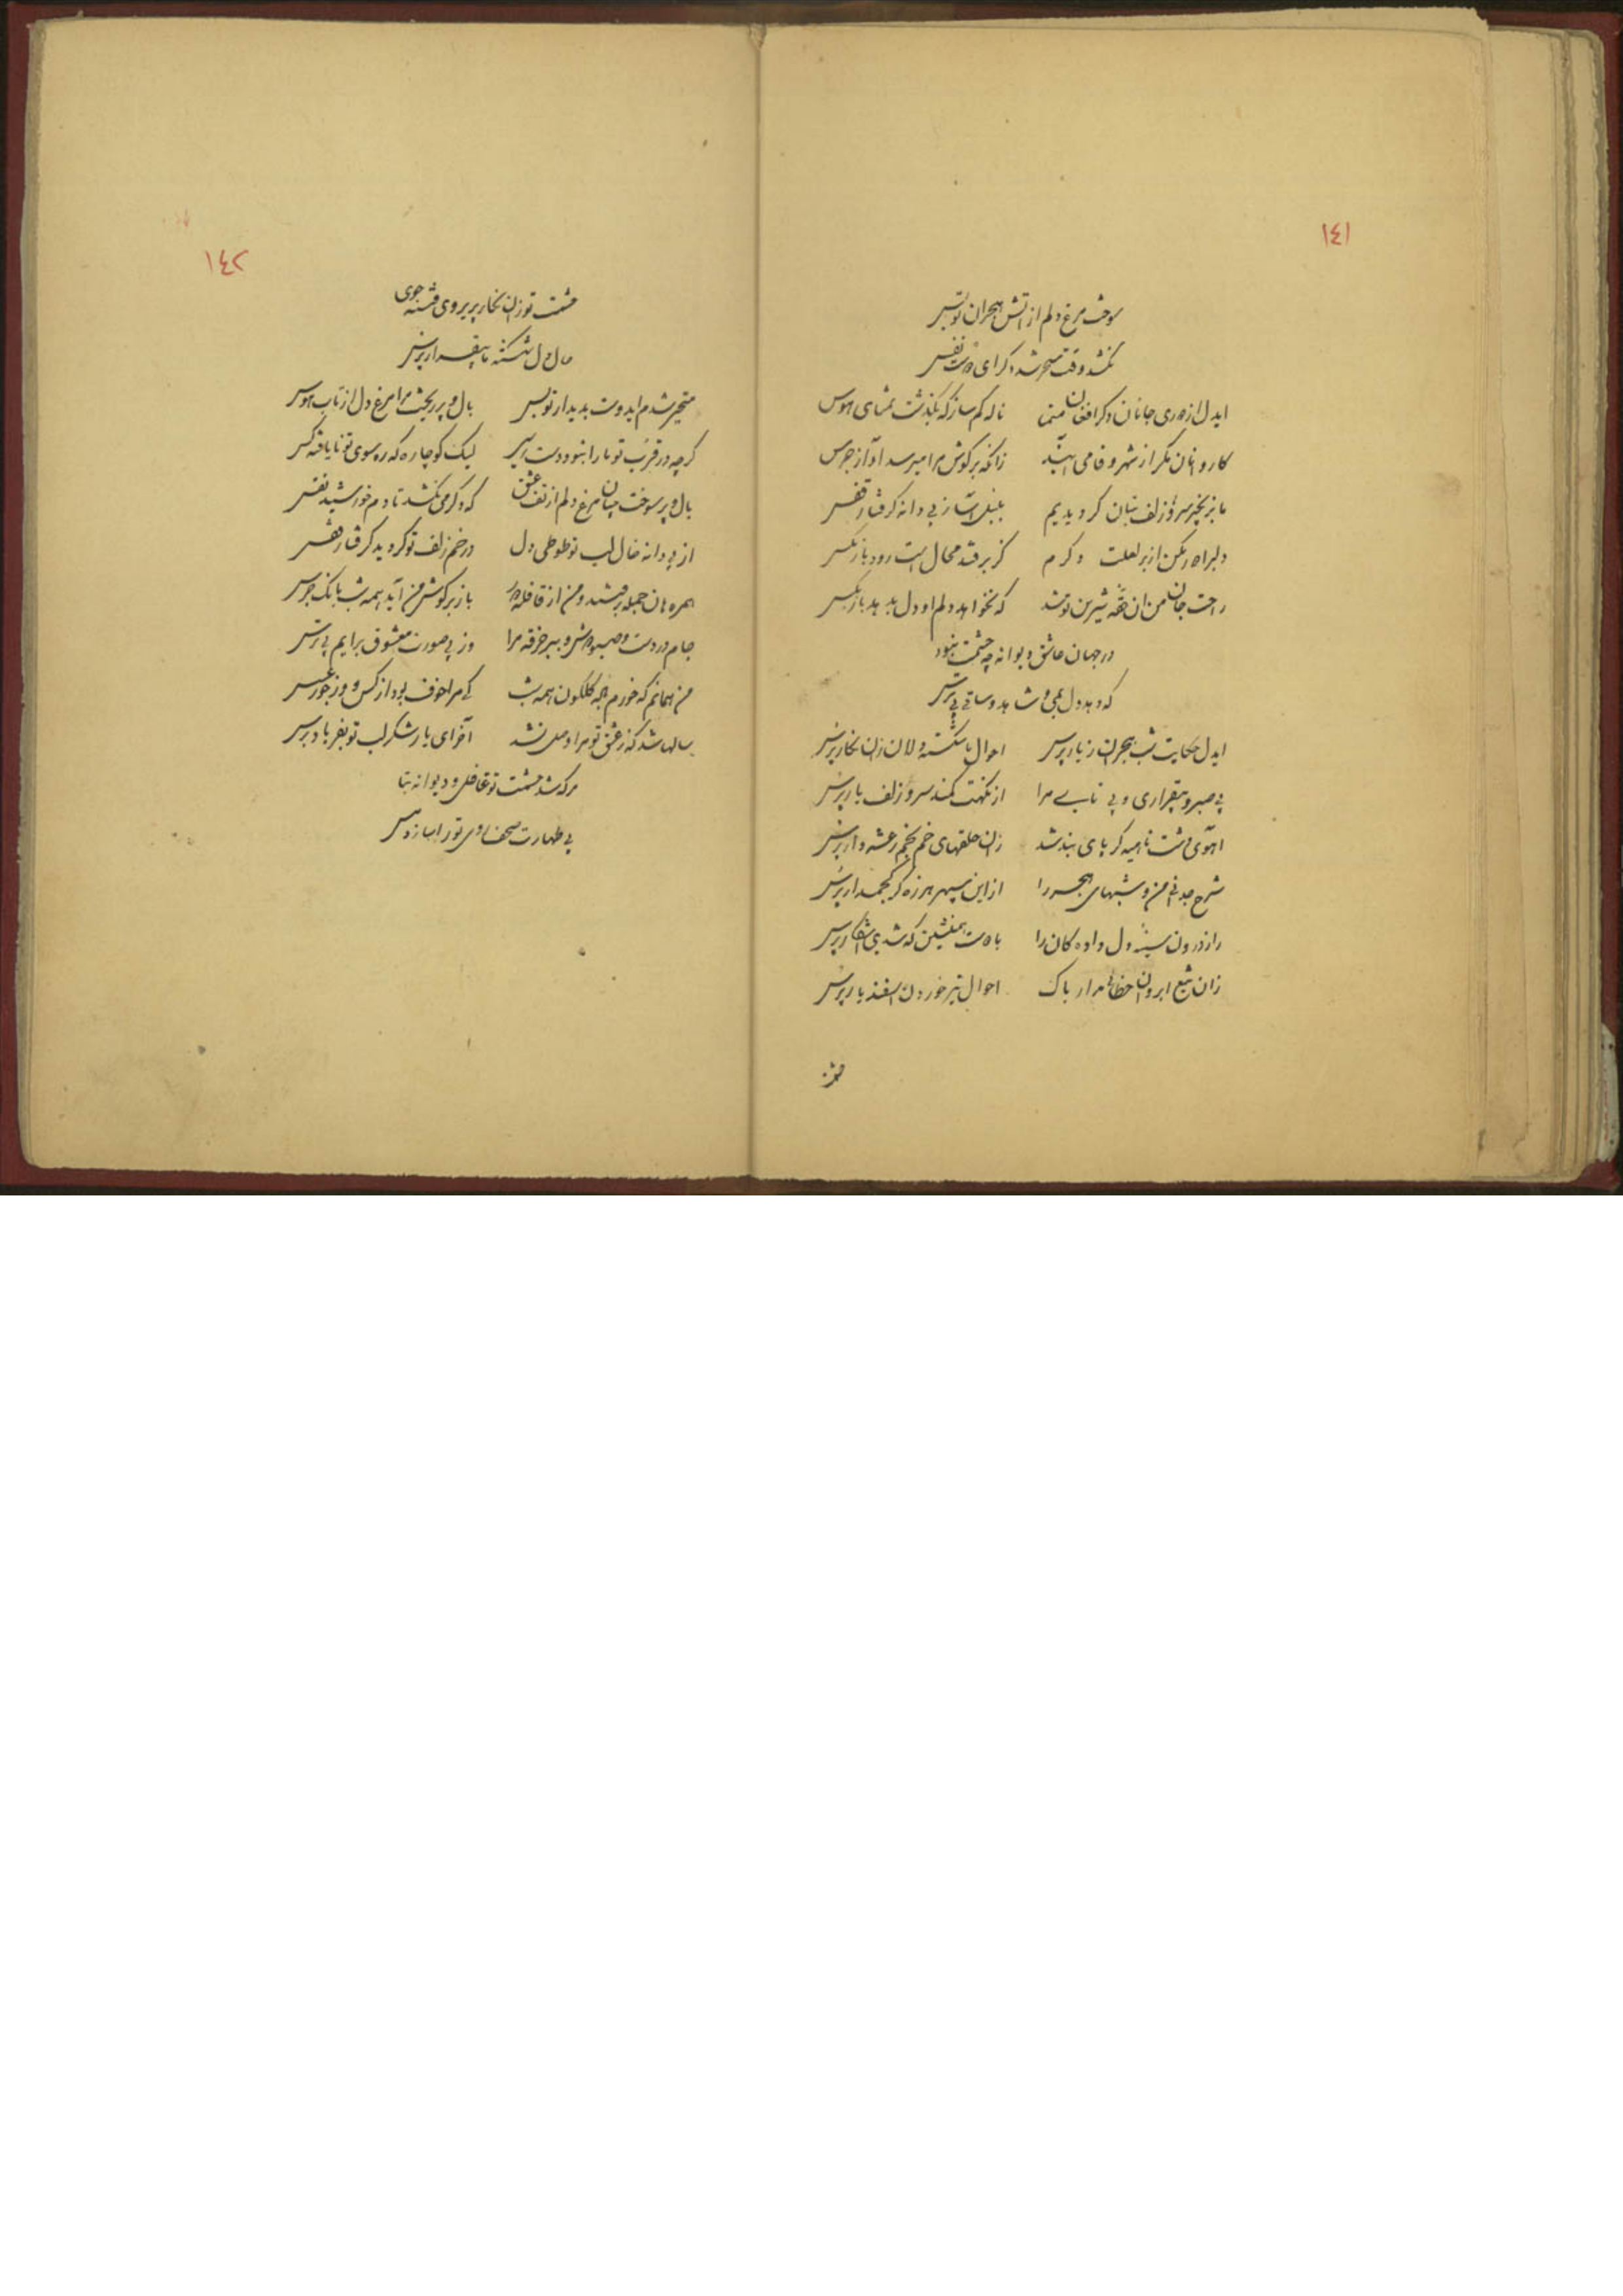 ١٤١
سوخت مرغ دلم از آتش هجران تو بس
نکشد وقت سحر شد دگر ای دوست نفس
ایدل از دوری جانان دگر افغان منما
ناله کم ساز که بگذشت تمنای هوس
کاروانان مگر از شهر وفا می آیند
زانکه بر گوش مرا میرسد آواز جرس
ما بزنجیر سر زلف بتان گردیدیم
بلبل آسا ز پی دانه گرفتار قفس
دلبرا دور مکن از بر لعلت دگرم
گر برفت محال است رود باز مگس
راحت جان من آن حقه شیرین تو شد
که نخواهد دلم او دل بدهد باز بکس
در جهان عاشق دیوانه چه حشمت نبود
که دهد دل بمی و شاهد و ساقی بی ترس
ایدل حکایت شب هجران ز یار پرس
احوال ما شکسته دلان زان نگار پرس
بی صبر و بیقراری و بی تابی مرا
از نکهت کمند سر زلف یار پرس
آهوی دشت نامیه گر پای بند شد
زان حلقهای خم بخم رعشه دار پرس
شرح جدائی من و شبهای هجر را
از این سپهر هرزه گر کجمدار پرس
راز درون سینه دل داده کان را
با دوست همنشین که شدی آشکار پرس
زان تیغ ابروان خطائی مدار باک
احوال تیر خوردن اسفندیار پرس
حشمت
١٤٢
حشمت تو زان نگار پریروی فتنه جوی
حال دل شکسته ما بیقرار پرس
متحیر شدم ایدوست بدیدار تو بس
بال و پر ریخت مرا مرغ دل از تاب هوس
گرچه در قرب تو ما را نبود دست رسی
لیک کو چاره که ره سوی تو نایافته کس
بال و پر سوخت چنان مرغ دلم از تف عشق
که دگر می نکشد تا دم خورشید نفس
از پی دانه خال لب تو طوطی دل
در خم زلف تو گردید گرفتار قفس
همرهان جمله برفتند و من از قافله دور
باز بر گوش من آید همه شب بانگ جرس
جام در دست و صبو دوش و ببر خرقه مرا
وز پی صورت معشوق برایم بی ترس
من همانم که خورم باده گلگون همه شب
کی مرا خوف بود از کس و وز جور عسس
سالها شد که ز عشق تو مرا وصل نشد
آخر ای یار شکر لب تو بفریاد برس
هر که شد حشمت تو غافل و دیوانه بتا
بی طهارت مصحف روی تو را سازد مس